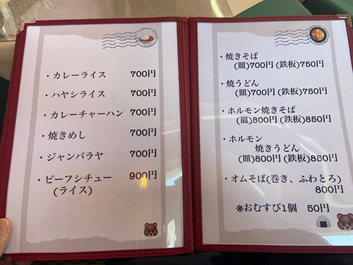 ・カレーライス 700円
・ハヤシライス 700円
・カレーチャーハン 700円
・焼きめし 700円
・ジャンバラヤ 700円
・ビーフシチュー 900円
(ライス)
・焼きそば
(皿)700円(鉄板)750円
・焼うどん
(皿)700円(鉄板)750円
・ホルモン焼きそば
(皿)800円(鉄板)850円
・ホルモン
焼きうどん
(皿)800円(鉄板)850円
・オムそば(巻き、ふわとろ)
800円
※おむすび1個 50円